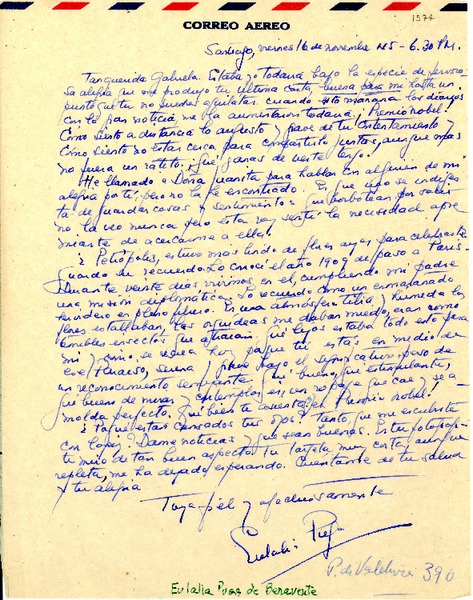 1574
CORREO AEREO
Santiago, viernes 16 de noviembre 45 - 6.30 P.M.
Tan querida Gabriela. Estaba yo todavía bajo la especie de
la alegría que me produjo tu última carta, buena para mi hasta un
punto que tu no puedes aquilatar, cuando esta mañana los diarios
con la gran noticia me la aumentaron todavía. ¡Premio Nobel!
Cómo siento a distancia tu aspecto y paz de tu contentamiento y
cómo siento no estar cerca para compartirlo juntas, aunque más
no fuera un ratito. ¡Qué ganas de verte tengo!
He llamado a Doña Juanita para hablar con alguien de mi
alegría por ti, pero no la he encontrado. Es que uno se
ta de guardar cosas y sentimientos que borbotean por salir
no la veo nunca pero esta vez sentí la necesidad apre
miante de acercarme a ella!
Petrópolis, estuvo más lindo de flores ayer para celebrarte?
Guardo su recuerdo. Lo conocí el año 1909 de paso a París.
Durante veinte días vivimos en el, cumpliendo mi padre
una misión diplomática. Lo recuerdo como un enmarañado
invernadero en pleno Era una atmósfera tibia y húmeda las
flores estallaban, las orquídeas me daban miedo, eran como
terribles insectos que atraían. Qué lejos estaba todo esto para
mi y como se acerca hoy porque tú estás en medio de
ese Paraíso, serena y grave bajo el significativo peso de
un reconocimiento semejante. Qué bueno, que estimulante,
qué bueno de mirar y contemplar es, un ropaje que cae y se a
molda perfecto. Qué bien te asienta el Premio Nobel!
¿Porque están cansados tus ojos? ¿tanto que me escribiste
con lápiz? Dame noticias y que sean buenas. En tu fotografía
te miro de tan buen aspecto. Tu tarjeta muy corta, aunque
repleta, me ha dejado esperando. Cuéntame de tu salud
y tu alegría
Tuya fiel y afectuosamente
Eulalia Puga
P. de Valdivia 390
Eulalia Puga de Benavente